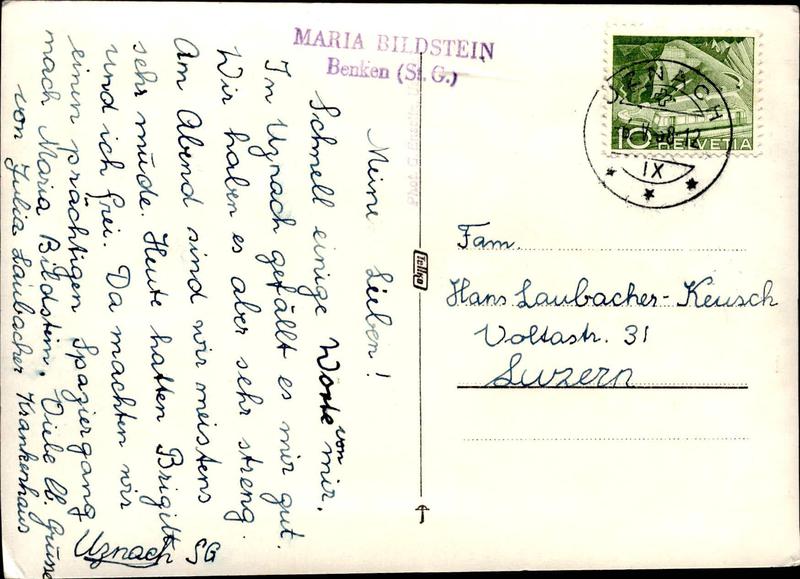 MARIA BILDSTEIN
Benken (St. G.)
Meine Lieben!
Schnell einige Worte von mir.
In Uznach gefällt es mir gut.
Wir haben es aber sehr streng.
Am Abend sind wir meistens
sehr müde. Heute hatten Brigitt
und ich frei. Da machten wir
einen prächtigen Spaziergang
nach Maria Bildstein. Viele lb. Grüsse
von Julia Laubacher Krankenhaus
Uznach SG
Telko
UZNACH
IX
10 HELVETIA
Fam.
Hans Laubacher-Keusch
Voltastr. 31
Luzern